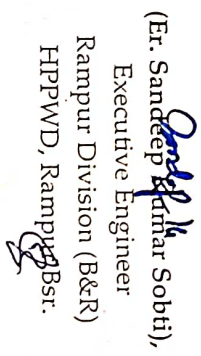 (Er. Sandeep Kumar Sobti),
Executive Engineer
Rampur Division (B&R)
HPPWD, Rampur Bsr.